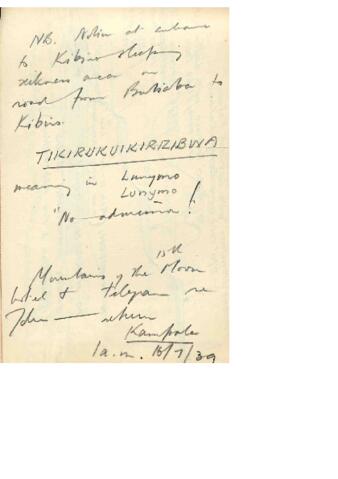 NB. Notice at entrance
to Kibiro sleeping
sickness area on
road from Butiaba to
Kibiro.
TIKIRUKUIKIRIZIBUWA
meaning in Lunyoro
Lunyoro
"No admission!
15th
Mountains of the Moon
hotel & telegram re
return
Kampala
1 a.m. 15/7/39